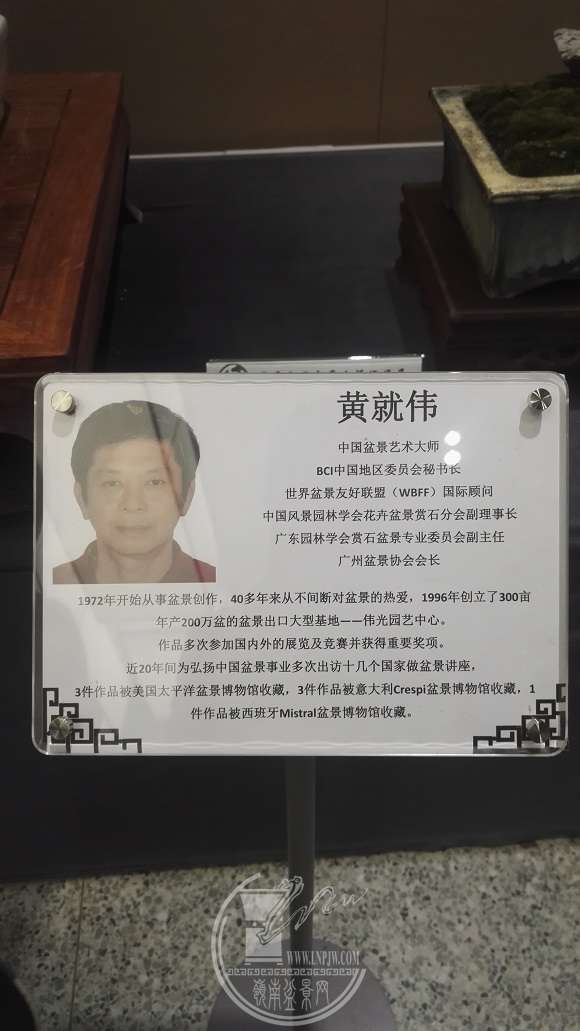 黄就伟
中国盆景艺术大师
BCI中国地区委员会秘书长
世界盆景友好联盟（WBFF）国际顾问
中国风景园林学会花卉盆景赏石分会副理事长
广东园林学会赏石盆景专业委员会副主任
广州盆景协会会长
1972年开始从事盆景创作，40多年来从不间断对盆景的热爱，1996年创立了300亩
年产200万盆的盆景出口大型基地——伟光园艺中心。
作品多次参加国内外的展览及竞赛并获得重要奖项。
近20年间为弘扬中国盆景事业多次出访十几个国家做盆景讲座，
3件作品被美国太平洋盆景博物馆收藏，3件作品被意大利Crespi盆景博物馆收藏，1
件作品被西班牙Mistral盆景博物馆收藏。
WWW.LNPJW.COM
嶺南盆景网